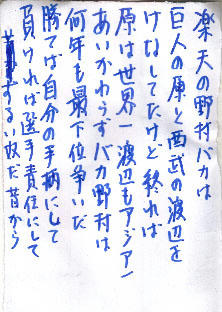 楽天の野村バカは
巨人の原と西武の渡辺を
けなしてたけど終れば
原は世界一渡辺もアジア一
あいかわらずバカ野村は
何年も最下位争いだ
勝てば自分の手柄にして
負ければ選手責任にして
ずるい奴だ昔から